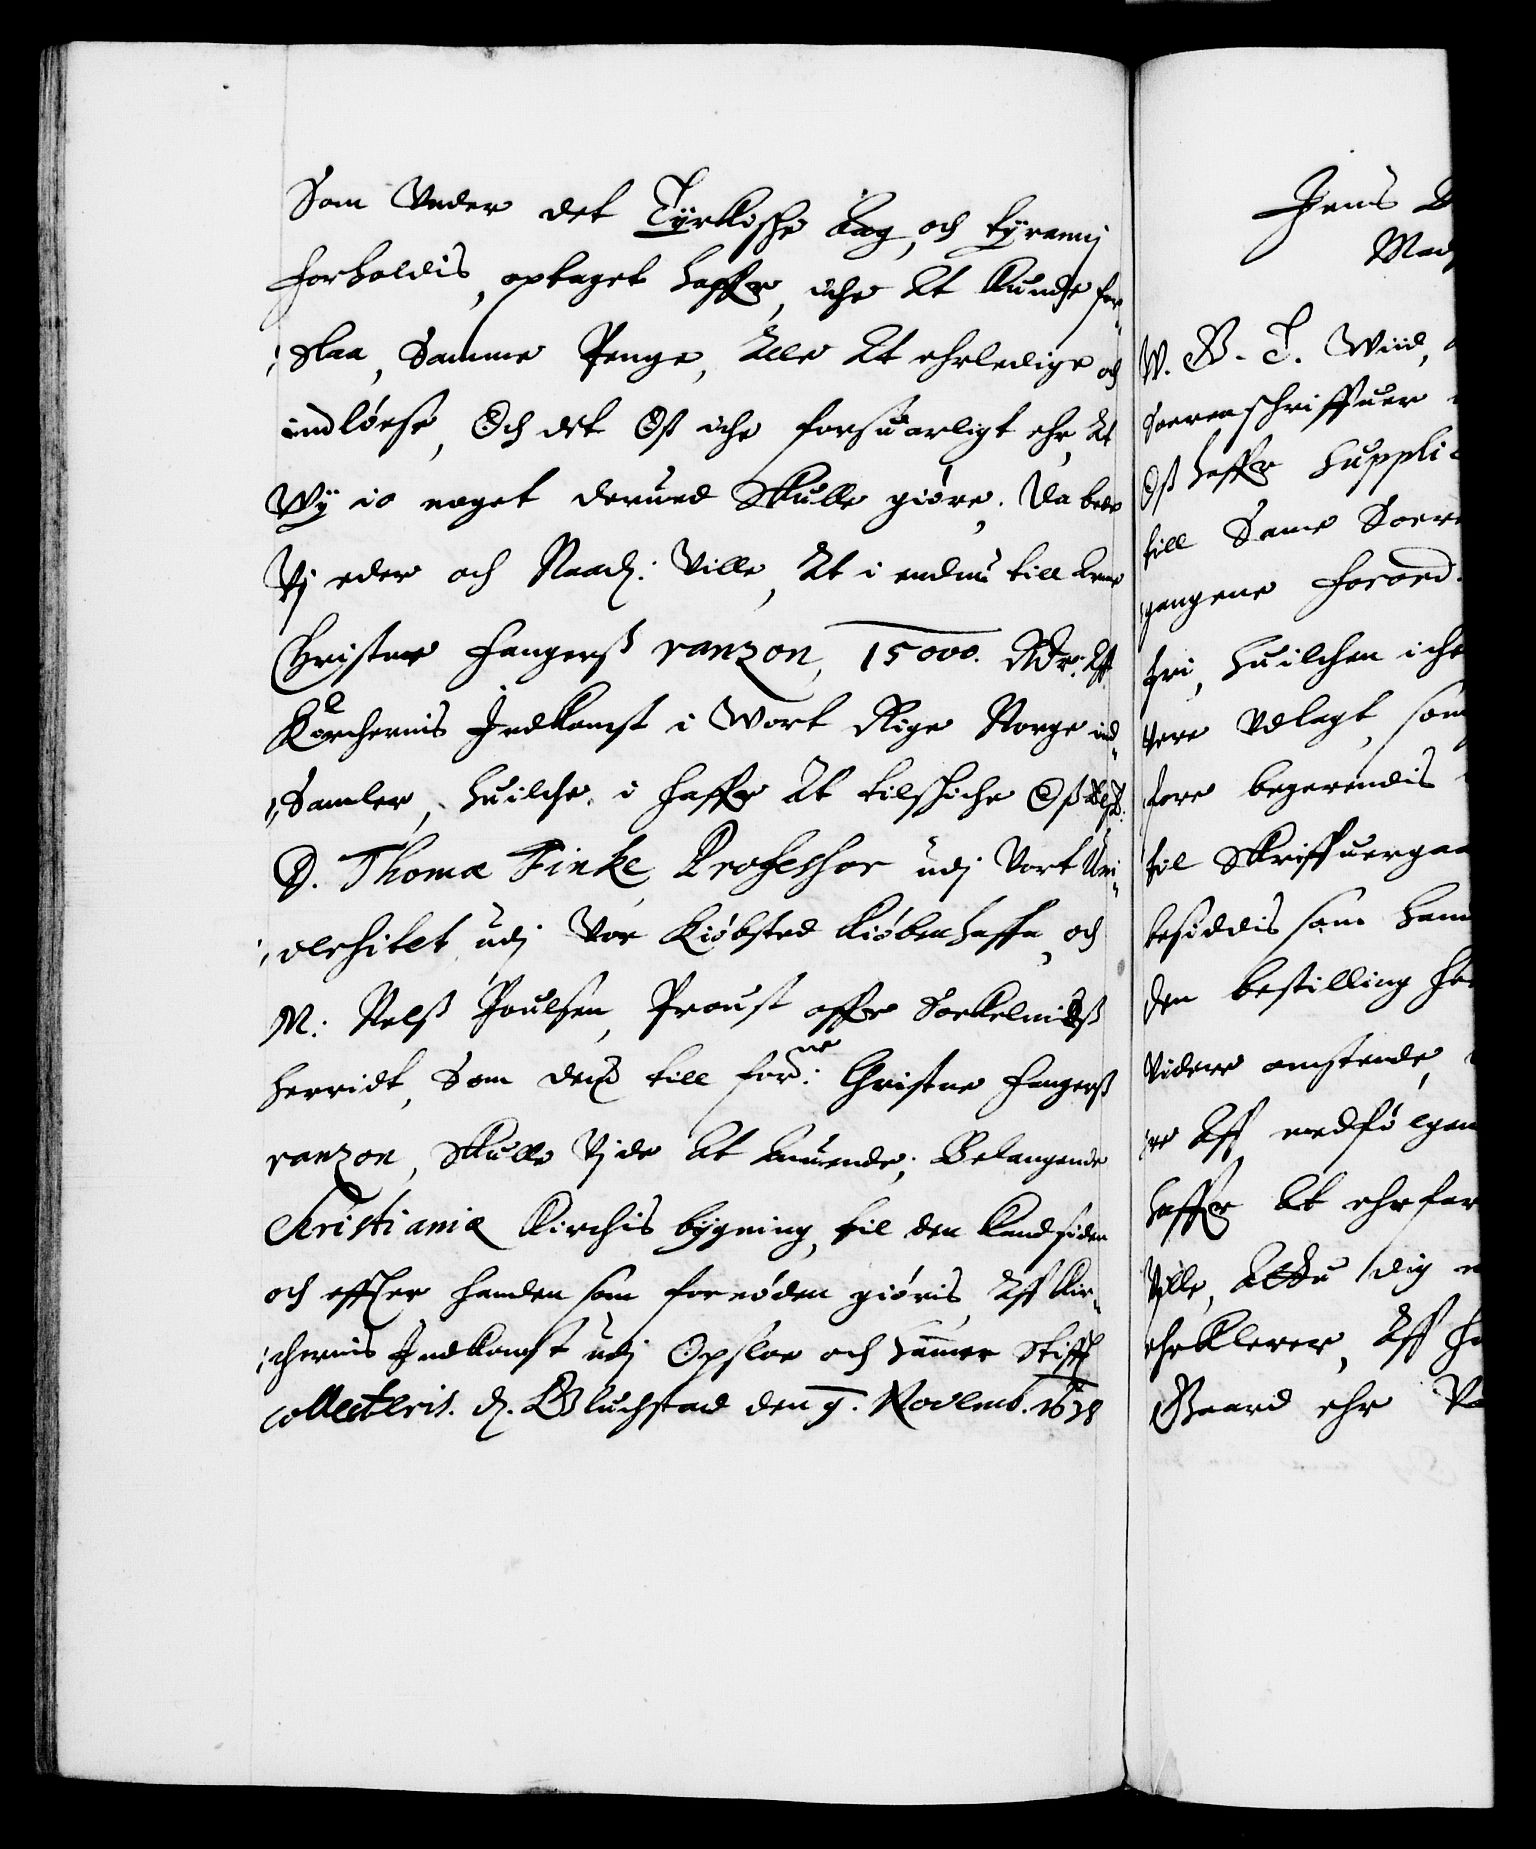 Som Vnder det Tyrkische Aag, och tyranni
forholdis, optaget haffr, iche At kunde for¬
slaa, Samme Penge, Alle At ehrledige och
indløese, Och det Oß iche forsuarligt ehr, At
Wÿ io noget derued Skulle giøre, Da bede
Vj eder och Naad: Ville, At i endnu till Arme
Christne fangers ranzon, 15000. Rdr: Aff
Kirchernis Indkomst i Wort Rige Norge ind¬
Samler, huilche i haffr At tilschiche Oß elsk:
D. Thomæ Finke, Professor udj Vort Uni¬
versitet udj Vor Kiøbsted Kiøbenhaffn, och
M: Nelß Poulsen, Proust offr Sockelunds
herridt, Som dend till forne: Christne fangers
ranzon, Skulle Vide At Anuende, Belangende
Kristianiæ Kirchis bygning, til den kand siden
och effter handen som fornøden giøris, Aff Kir¬
chernis Indkomst udj Opsloe och Hammer Stifft
collecteris. d. Gluchstad den 9. Novemb. 1638
Jens B
Mad
W. G. T. Wiid,
Sorenschriffuer
Oß haffr Supplic
till Same Soren
gangene forord
fri, huilchen iche
vere Vdlagt, som
fore begerendis
til Skriffuergaa
besiddis som hann
den bestilling for
Videre omstende,
re Aff medfølgen
haffr At ehrfar
Ville, At du dig m
ehrklerer, Aff ha
Gaard ehr Va